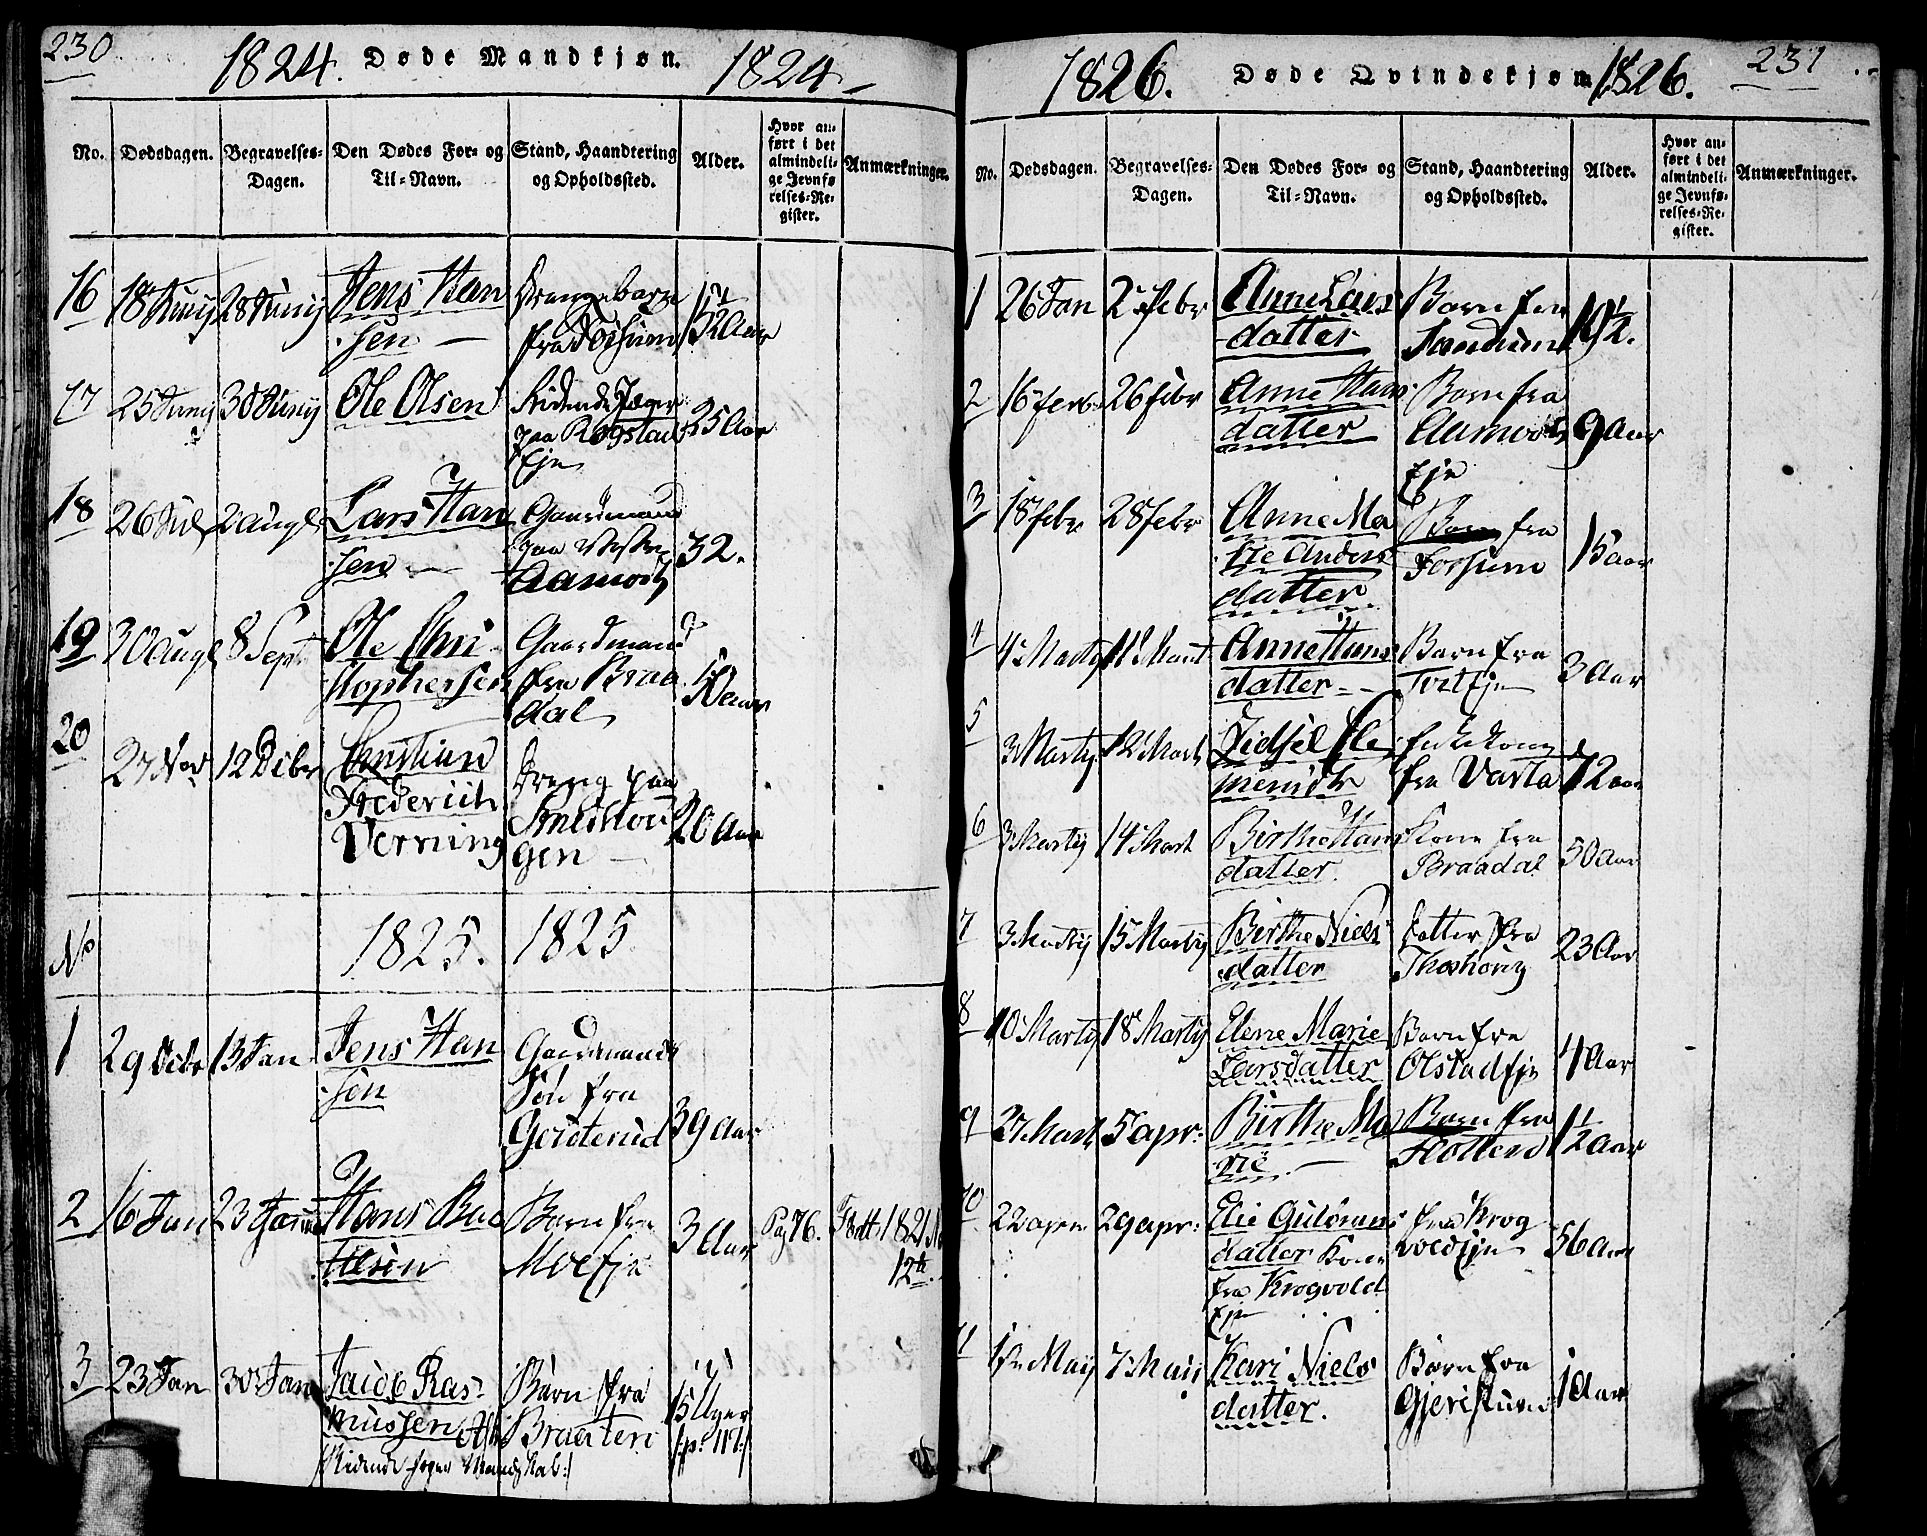 230
1824. Døde Mandkjøn. 1824
No. Dødsdagen. Begravelses-Dagen. Den Dødes For- og Til-Navn. Stand, Haandtering og Opholdssted. Alder. Hvor anført i det almindelige Jevnførelses-Register. Anmærkninger.
16 18 Juny 28 Juny Jens Hansen Drengebarn fra Fossum
17 25 Juny 30 Juny Ole Olsen Ridende Jæger paa Rogstad Eje 25 Aar
18 26 Jul 2 augl Lars Hansen Gaardmand paa Vestre Aamodt 32.
19 30 Augl 8 Sept Ole Christophersen Gaardmand fra Braadal
20 27 Nov 12 Debr Christian Frederich Verning Dreng paa 20 Aar
No 1825. 1825
1 29 Debr 13 Jan Jens Hansen Gaardmands Søn fra Gouterud 39 Aar
2 16 Jan 23 Januar Hans Bae Barn fra Moeeje 3 Aar Pag 76. Født 1821 No 12te
3 23 Jan 30 Jan Jacob Rasmussen Barn fra Braaten 15 Uger
Ridende Jæger
231
1826. Døde Qvindekjøn 1826.
No. Dødsdagen. Begravelses-Dagen. Den Dødes For- og Til-Navn. Stand, Haandtering og Opholdssted. Alder. Hvor anført i det almindelige Jevnførelses-Register. Anmærkninger.
1 26 Jan 2 Febr Anne Larsdatter Barn fra
2 16 febr 26 febr Anne Hansdatter Barn fra Aamodt Eje 9 Aar
3 18 febr 28 febr Anne Marie Andersdatter Barn fra Fossum 15 aar
4 4 Marty 11 Mart Anne Hansdatter Barn fra 3 Aar
5 3 Marty 12 Mart Zidsel Clemensdtr Enkekone fra Varla 72 aar
6 3 Marty 14 Mart Birthe Hansdatter Kone fra Braadal 50 Aar
7 3 Marty 15 Marty Birthe Nielsdatter Datter fra 23 Aar
8 10 Marty 18 Marty Elene Marie Larsdatter Barn fra Olstadeje 4 Aar
9 27 Mart 5 apr: Birthe Marie Barn fra 1 1/2 aar
10 22 apr 29 apr: Elie Gulbransdatter Kone fra Krogvold Eje fra Krogvoldeje 56 Aar
11 1 May 7 Maii Kari Nielsdatter Barn fra 1 Aar